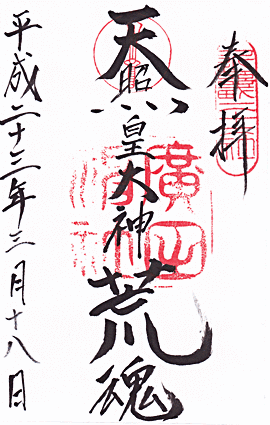 奉拝
天照皇大神荒魂
廣田神社
平成二十三年三月十八日